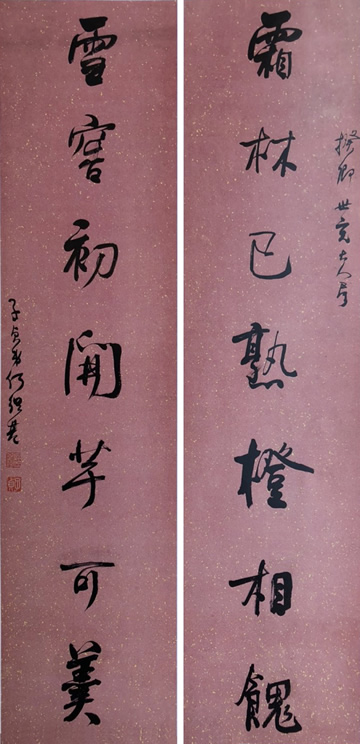 霜林已熟橙相餽
世完大人屬
雪窖初開芋可羹
子貞弟何紹基